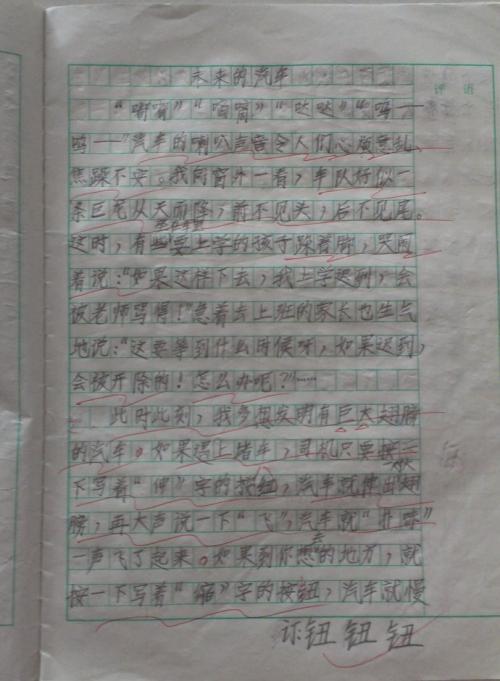 未来的汽车
评语
“嘀嘀”“响嘀”“哒哒”“呜一
呜一”汽车的喇叭声音令人们心烦意乱、
焦躁不安。我向窗外一看，车队好似一
条巨龙从天而降，前不见头，后不见尾。
这时，有些要上学的孩子跺着脚，哭闹
着说：“如果这样下去，我上学迟到，会
被老师骂得！”急着去上班的家长也生气
地说：“这要等到什么时候呀，如果迟到，
会被开除的！怎么办呢？”……
此时此刻，我多想发明有巨大翅膀
的汽车。如果遇上堵车，司机只要按一
下写着“伸”字的按钮，汽车就伸出翅
膀，再大声说一下“飞”，汽车就“
一声飞了起来。如果到你想去的地方，就
按一下写着“缩”字的按钮，汽车就慢
订：钮 钮 钮